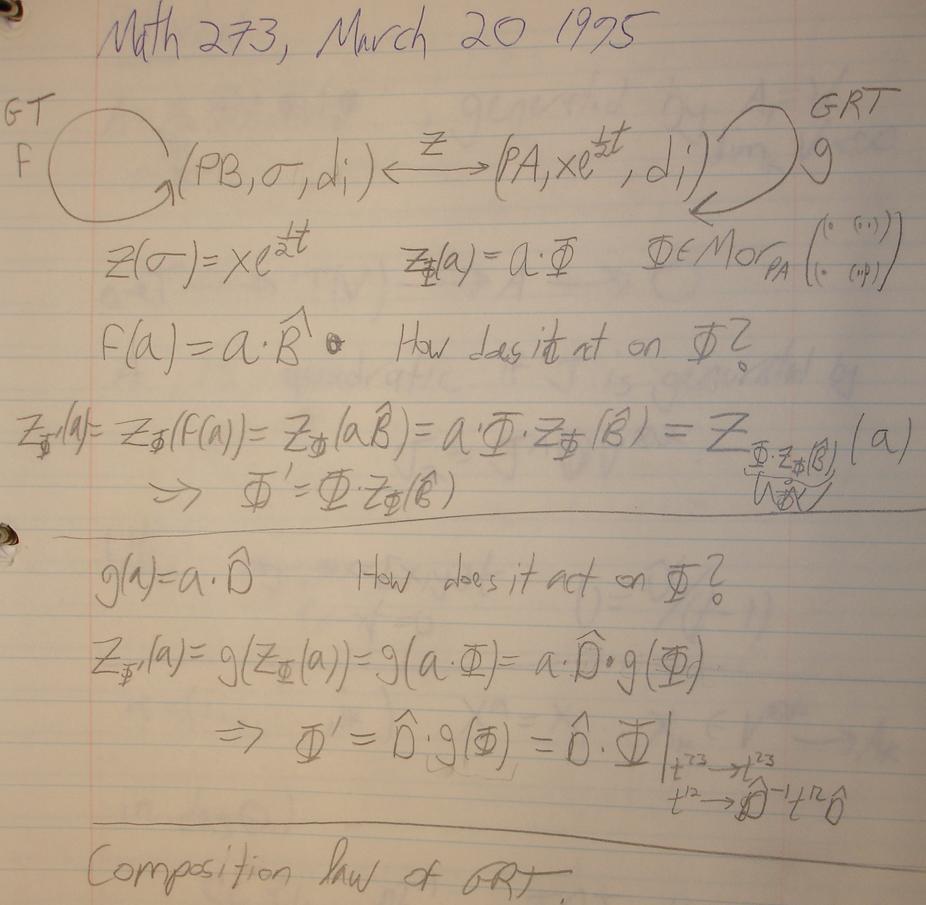 Math 273, March 20 1995
GT GRT
F (PB, σ, di) ⟷ Z (PA, xe^{½t}, di) g
Z(σ) = xe^{½t} Z_Φ(a) = a·Φ Φ ∈ Mor_PA ( (· (··)) (· (··)) )
F(a) = a·B̂ How does it act on Φ?
Z_Φ'(a) = Z_Φ(F(a)) = Z_Φ(aB̂) = a·Φ·Z_Φ(B̂) = Z_{Φ·Z_Φ(B̂)} (a)
⇒ Φ' = Φ·Z_Φ(B̂)
g(a) = a·D̂ How does it act on Φ?
Z_Φ'(a) = g(Z_Φ(a)) = g(a·Φ) = a·D̂·g(Φ)
⇒ Φ' = D̂·g(Φ) = D̂·Φ| t²³→t²³
t¹²→D̂⁻¹t¹²D̂
Composition law of GRT.